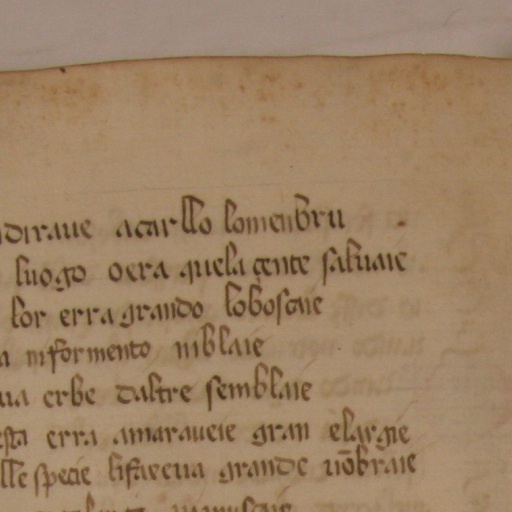 diraue acarllo lomenbru
luogo oera quela çente saluaie
lor erra grando loboscaie
niformento niblaie
ua erbe daltre semblaie
esta erra amaraueie gran elargie
lle specie lifaceua grande nōbraie